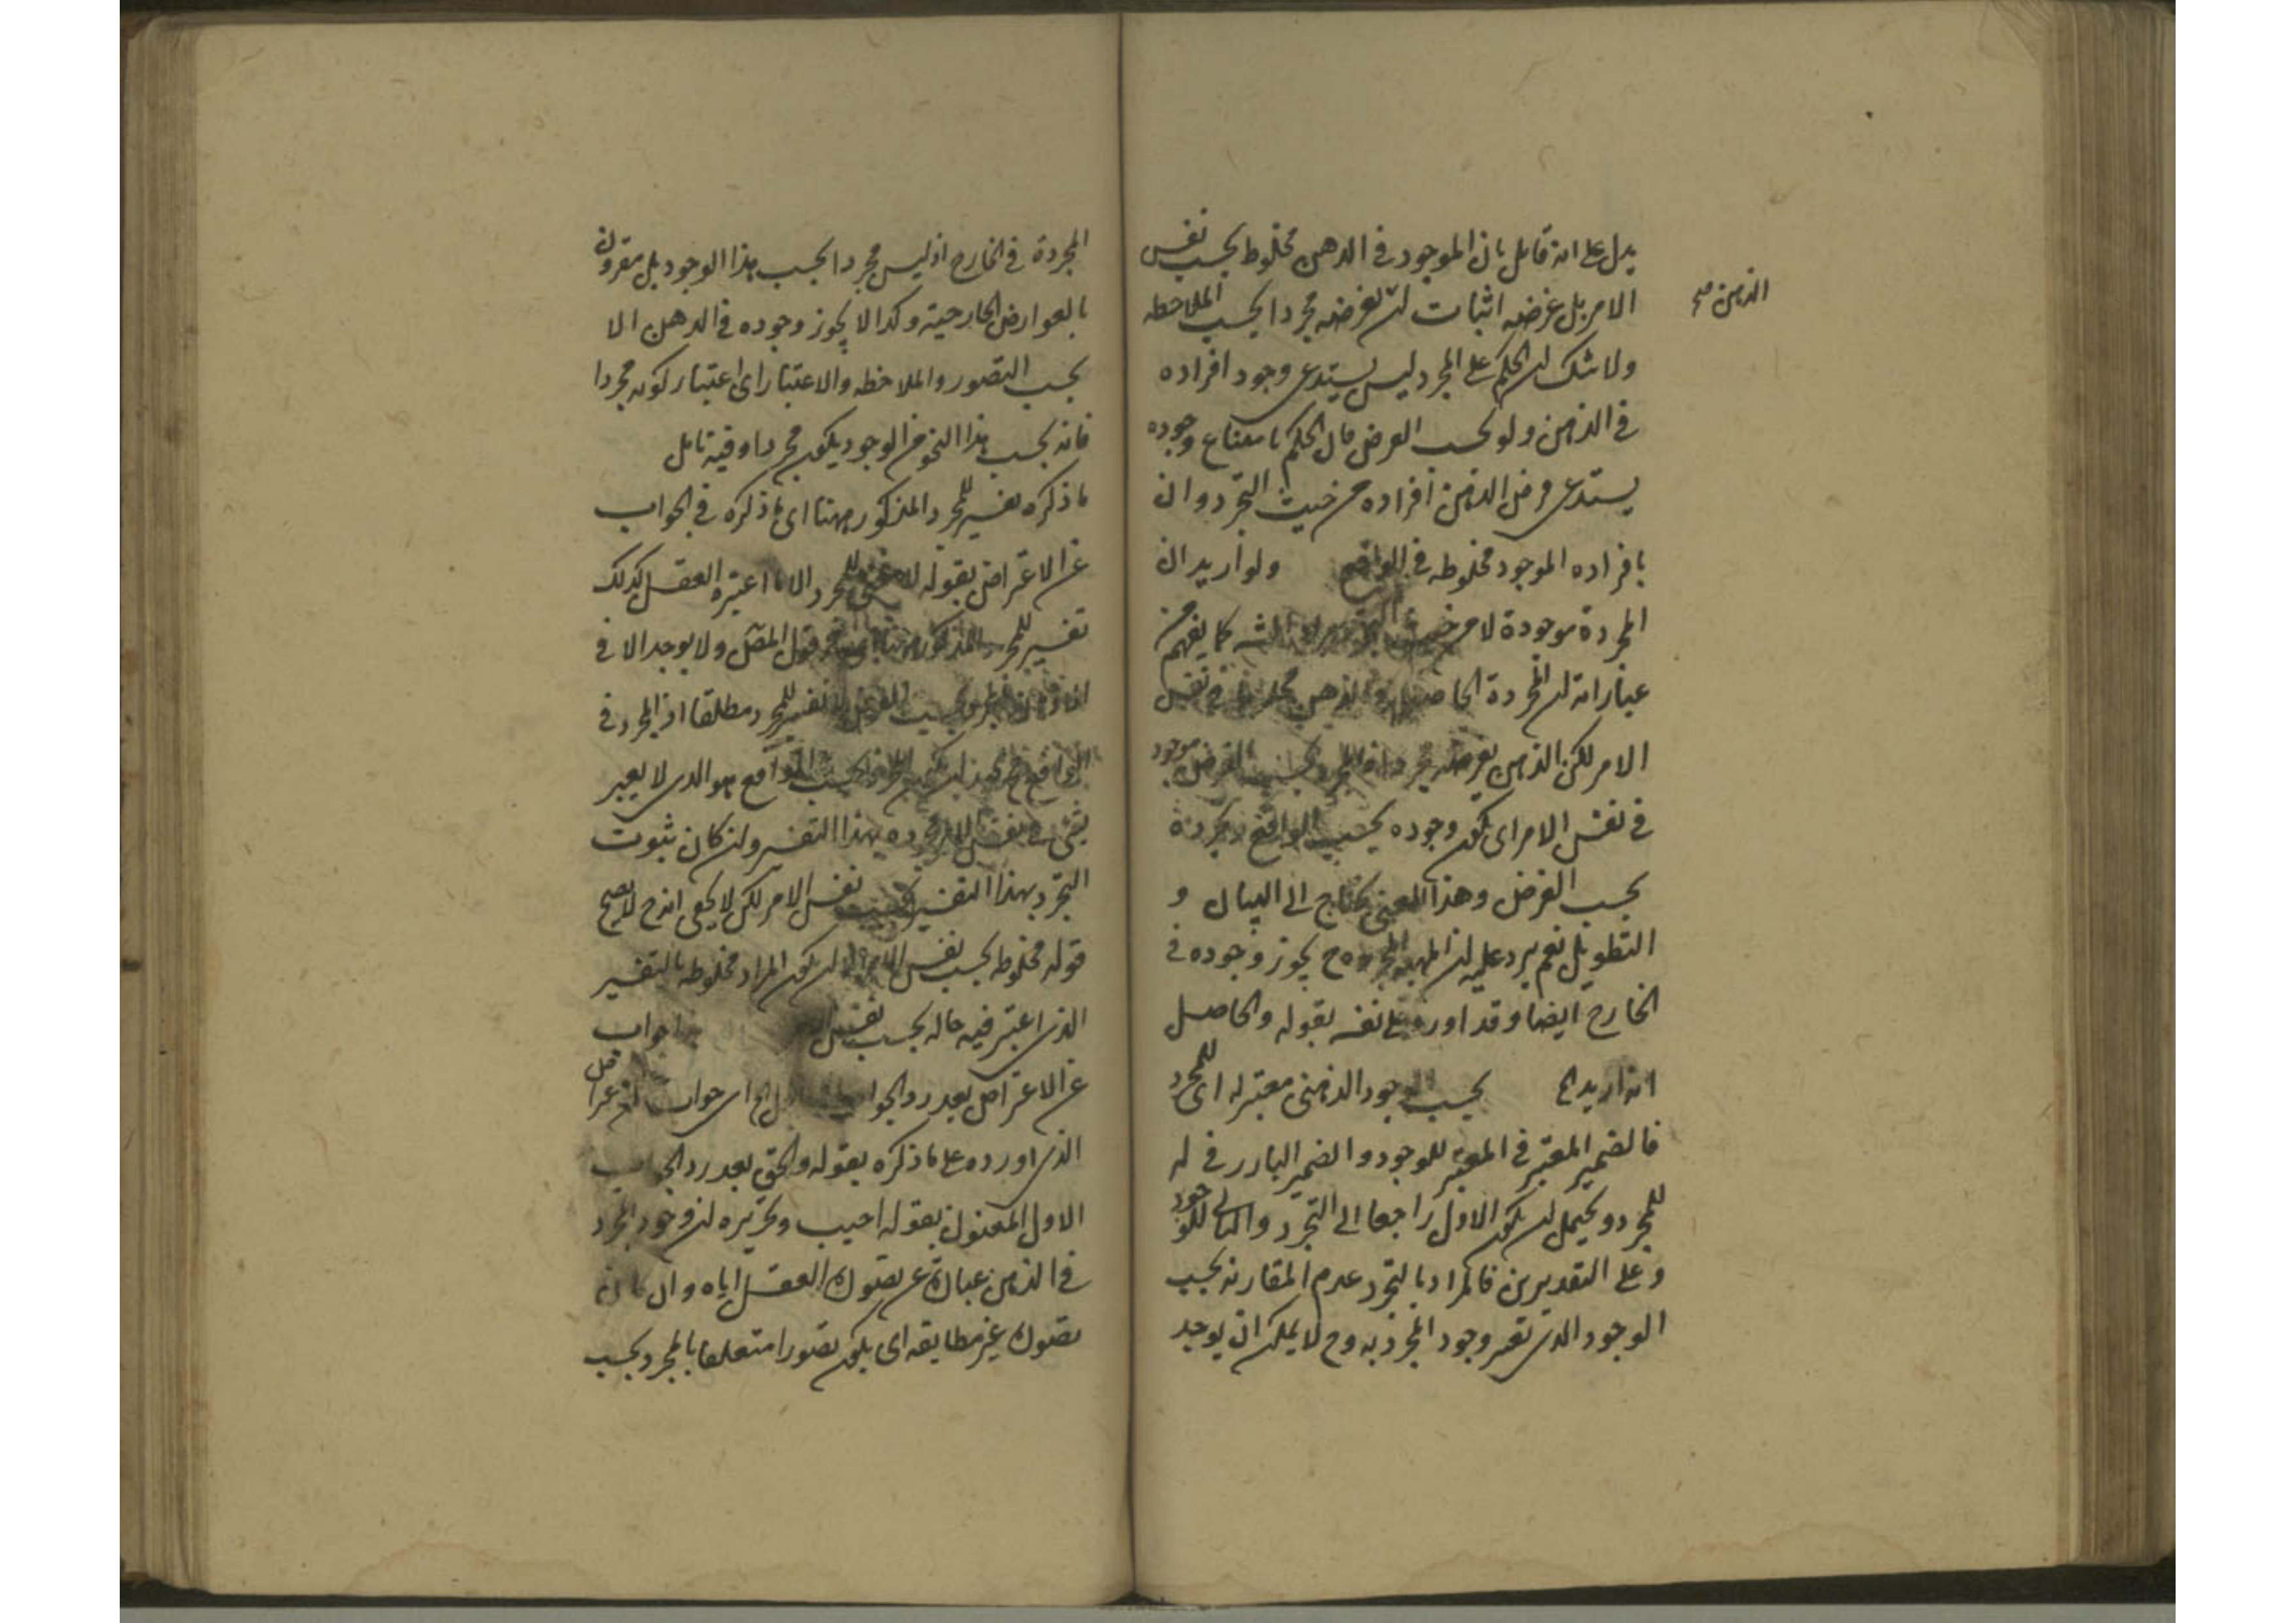 يدل على انه قائل بان الموجود فى الذهن مخلوط بحسب نفس
الامر بل غرضه اثبات ان يفرضه مجردا بحسب الملاحظه
الذهن صح
ولا شك ان الحكم على المجرد ليس يستدعى وجود افراده
فى الذهن ولو بحسب الفرض فان الحكم بامتناع وجوده
يستدعى فرض الذهن افراده من حيث التجرد وان
بافراده الموجود مخلوطه فى الواقع ولو اريد ان
المجردة موجودة لا من حيث كما يفهم من
عباراته ان المجردة الحاصلة فى الذهن مخلوطة فى نفس
الامر لكن الذهن يفرضه مجردا فالمجرد بحسب الفرض موجود
فى نفس الامر اى يكون وجوده بحسب الواقع وتجرده
بحسب الفرض وهذا المعنى يحتاج الى البيان و
التطويل نعم يرد عليه ان المهية المجردة ح يجوز وجوده فى
الخارج ايضا وقد اورد على نفسه بقوله والحاصل
انه اريد الخ بحسب الوجود الذهنى معتبر له اى للمجرد
فالضمير المعتبر فى المعتبر للوجود والضمير البارز فى له
للمجرد ويحتمل ان يكون الاول راجعا الى التجرد والثانى للوجود
وعلى التقديرين فالمراد بالتجرد عدم المقارنه بحسب
الوجود الذى تعبر وجود المجرد به وح لا يمكن ان يوجد
المجردة فى الخارج اذ ليس مجردا بحسب هذا الوجود بل مقرون
بالعوارض الخارجية وكذا لا يجوز وجوده فى الذهن الا
بحسب التصور والملاحظه والاعتبار اى اعتبار كونه مجردا
فانه بحسب هذا النحو من الوجود يكون مجردا وفيه تامل
ما ذكره تفسير للمجرد المذكور ههنا اى ما ذكره فى الجواب
عن الاعتراض بقوله لا معنى للمجرد الا ما اعتبره العقل كذلك
تفسير للمجرد المذكور ههنا اى فى قول المصنف ولا يوجد الا فى
بحسب الفرض لا تفسير للمجرد مطلقا اذ المجرد فى
الواقع بحسب الواقع هو الذى لا يعتبر
بشىء فى نفس الامر بهذا التفسير وان كان ثبوت
التجرد بهذا التفسير بحسب نفس الامر لكن لا يخفى انه ح لا يصح
قوله مخلوط بحسب نفس الامر الا ان يكون المراد مخلوطه بالتفسير
الذى اعتبر فيه حاله بحسب نفس جواب
عن الاعتراض بعد رد الجواب الاول الخ اى جواب
الذى اورده على ما ذكره بقوله والحق بعد رد الجواب
الاول المعنون بقوله اجيب وتحريره ان وجود المجرد
فى الذهن عبارة عن تصور العقل اياه وان كان
تصور غير مطابقه اى يكون تصورا متعلقا بالمجرد بحسب